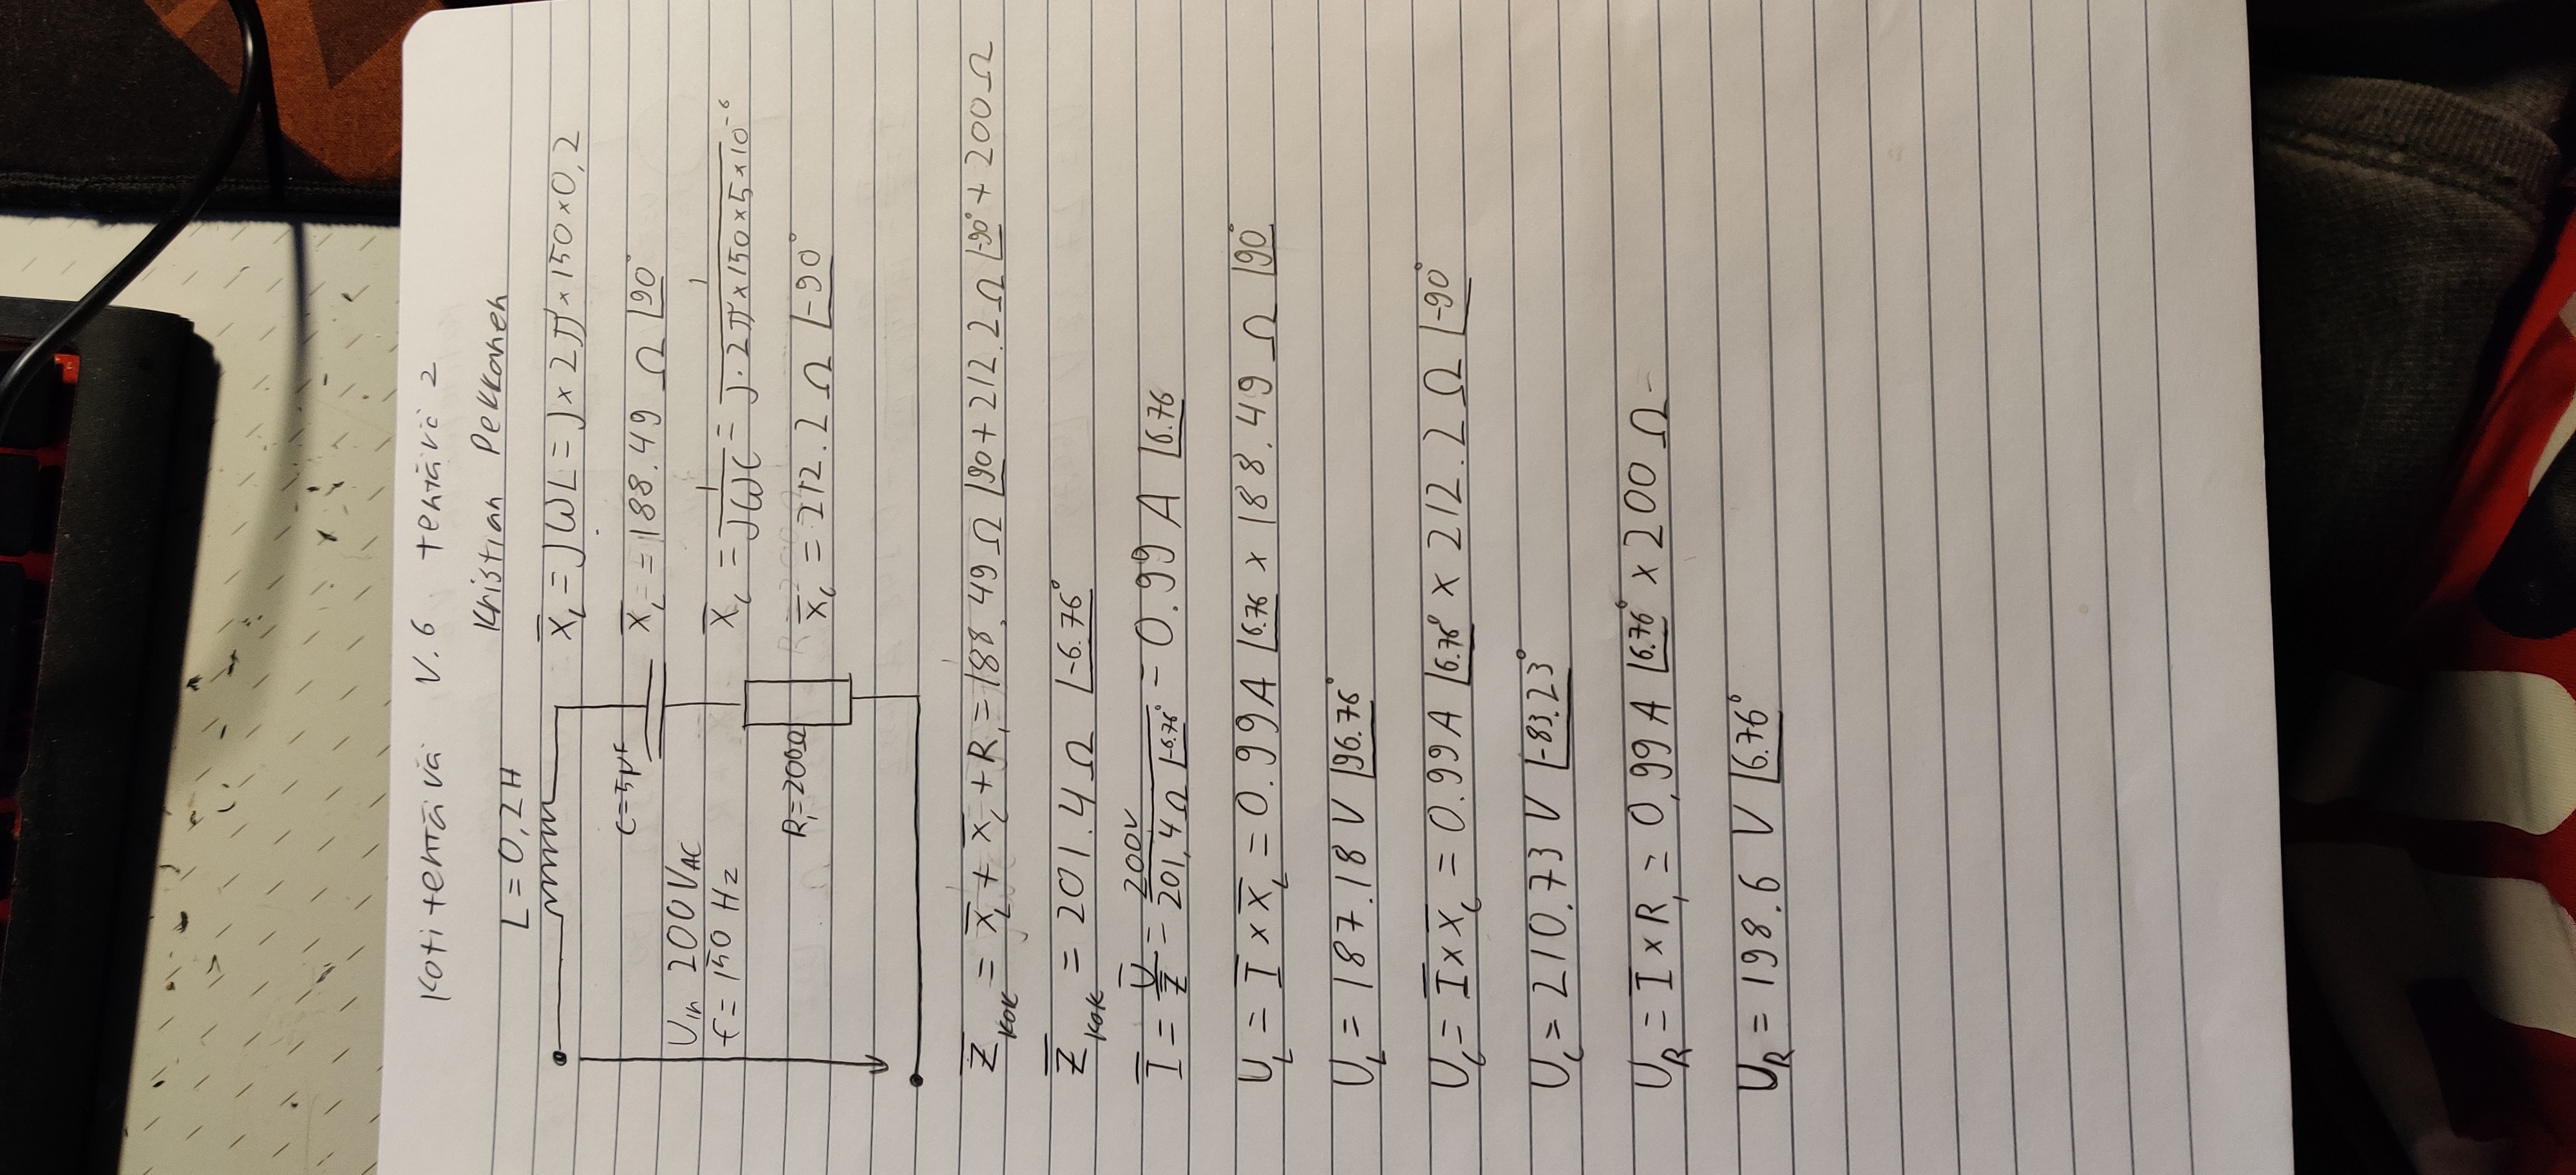 Kotitehtävä V.6 tehtävä 2
Kristian Pekkanen
L = 0,2H
C=5µF
Uin 200VAC
f = 150 Hz
R₁=200Ω
X̅L = jωL = j × 2π × 150 × 0,2
X̅L = 188.49 Ω ∠90°
X̅C = 1/jωC = 1/j · 2π × 150 × 5 × 10⁻⁶
X̅C = 212.2 Ω ∠-90°
Z̅KOK = X̅L + X̅C + R₁ = 188.49 Ω ∠90 + 212.2 Ω ∠-90° + 200Ω
Z̅KOK = 201.4 Ω ∠-6.76°
I̅ = U̅/Z̅ = 200V/201,4Ω ∠-6.76° = 0.99 A ∠6.76
UL = I̅ × X̅L = 0.99A ∠6.76 × 188.49 Ω ∠90°
UL = 187.18 V ∠96.76°
UC = I̅ × X̅C = 0.99A ∠6.76° × 212.2 Ω ∠-90°
UC = 210.73 V ∠-83.23°
UR = I̅ × R₁ = 0,99 A ∠6.76° × 200 Ω
UR = 198.6 V ∠6.76°